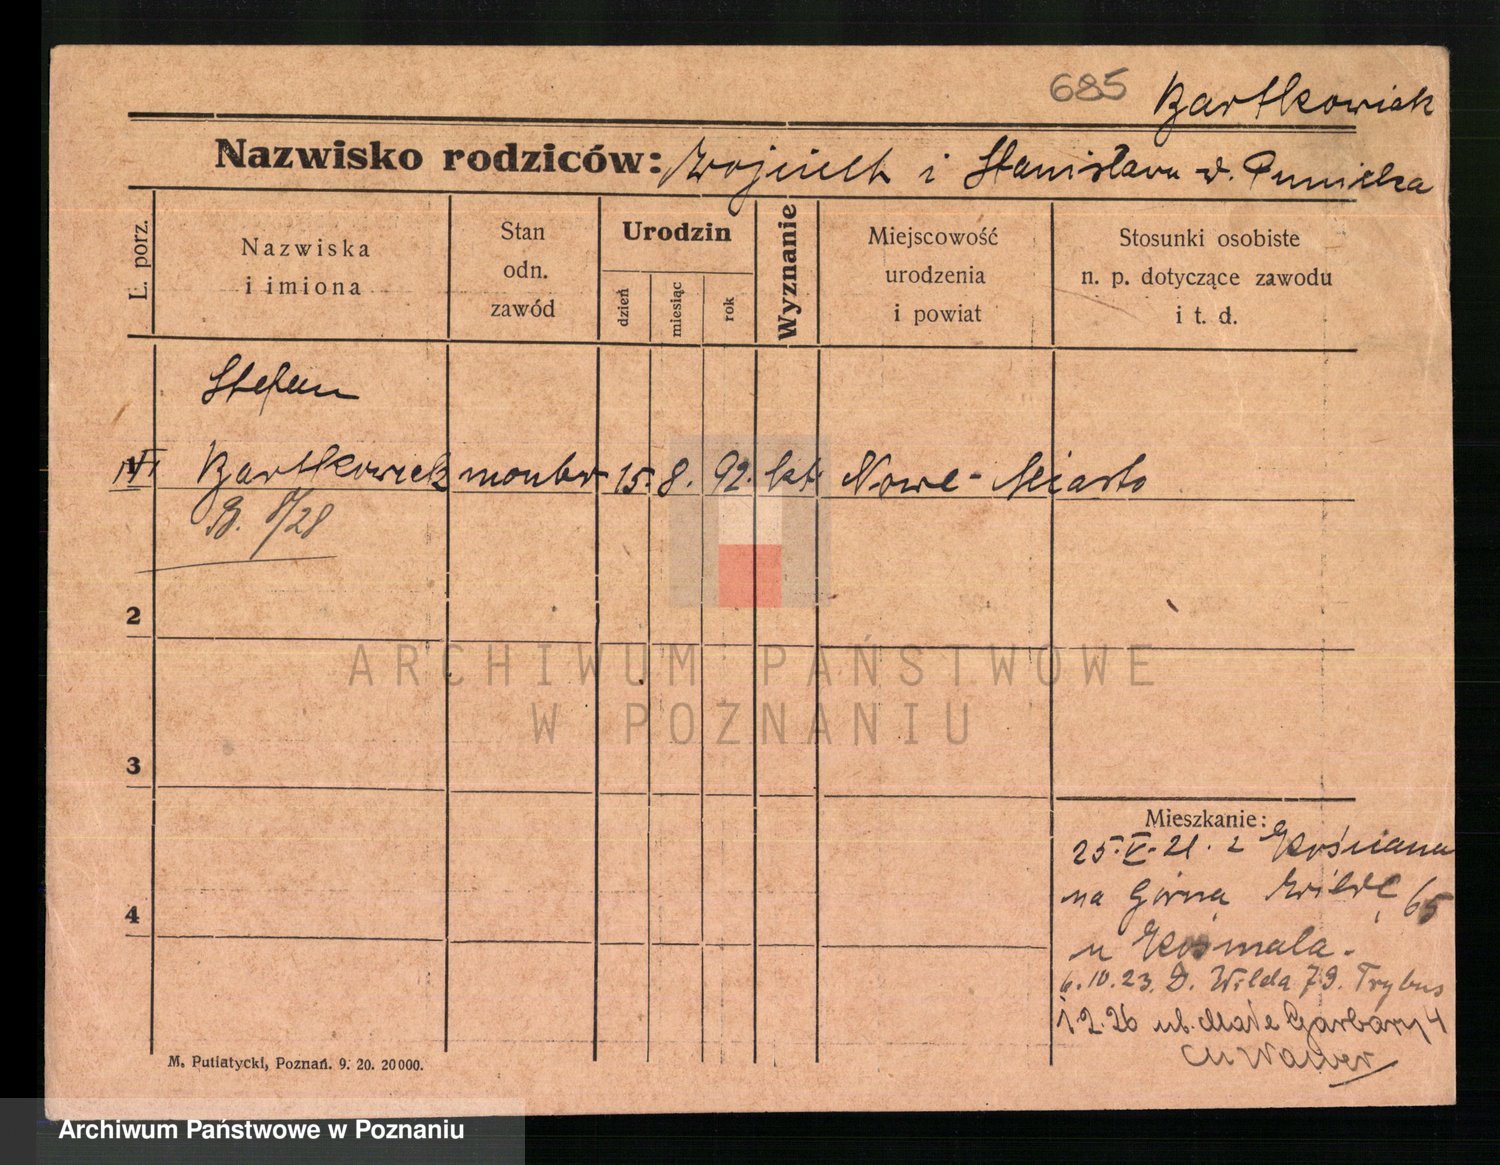 685 Bartkowiak
Nazwisko rodziców: Wojciech i Stanisława d.
L. porz.
Nazwiska
i imiona
Stan
odn.
zawód
Urodzin
dzień
miesiąc
rok
Wyznanie
Miejscowość
urodzenia
i powiat
Stosunki osobiste
n. p. dotyczące zawodu
i t. d.
Stefan
Bartkowiak monter 15. 8. 92. kt. Nowe-Miasto
B. 8/28
2
3
4
Mieszkanie:
25.V.21. z Kościana
na Górną Wildę 65
u Kosmala.
6.10.23. D. Wilda 79. Trybus
1.2.26 ul. Małe Garbary 4
M. Putiatycki, Poznań. 9. 20. 20000.
ARCHIWUM PAŃSTWOWE
W POZNANIU
Archiwum Państwowe w Poznaniu